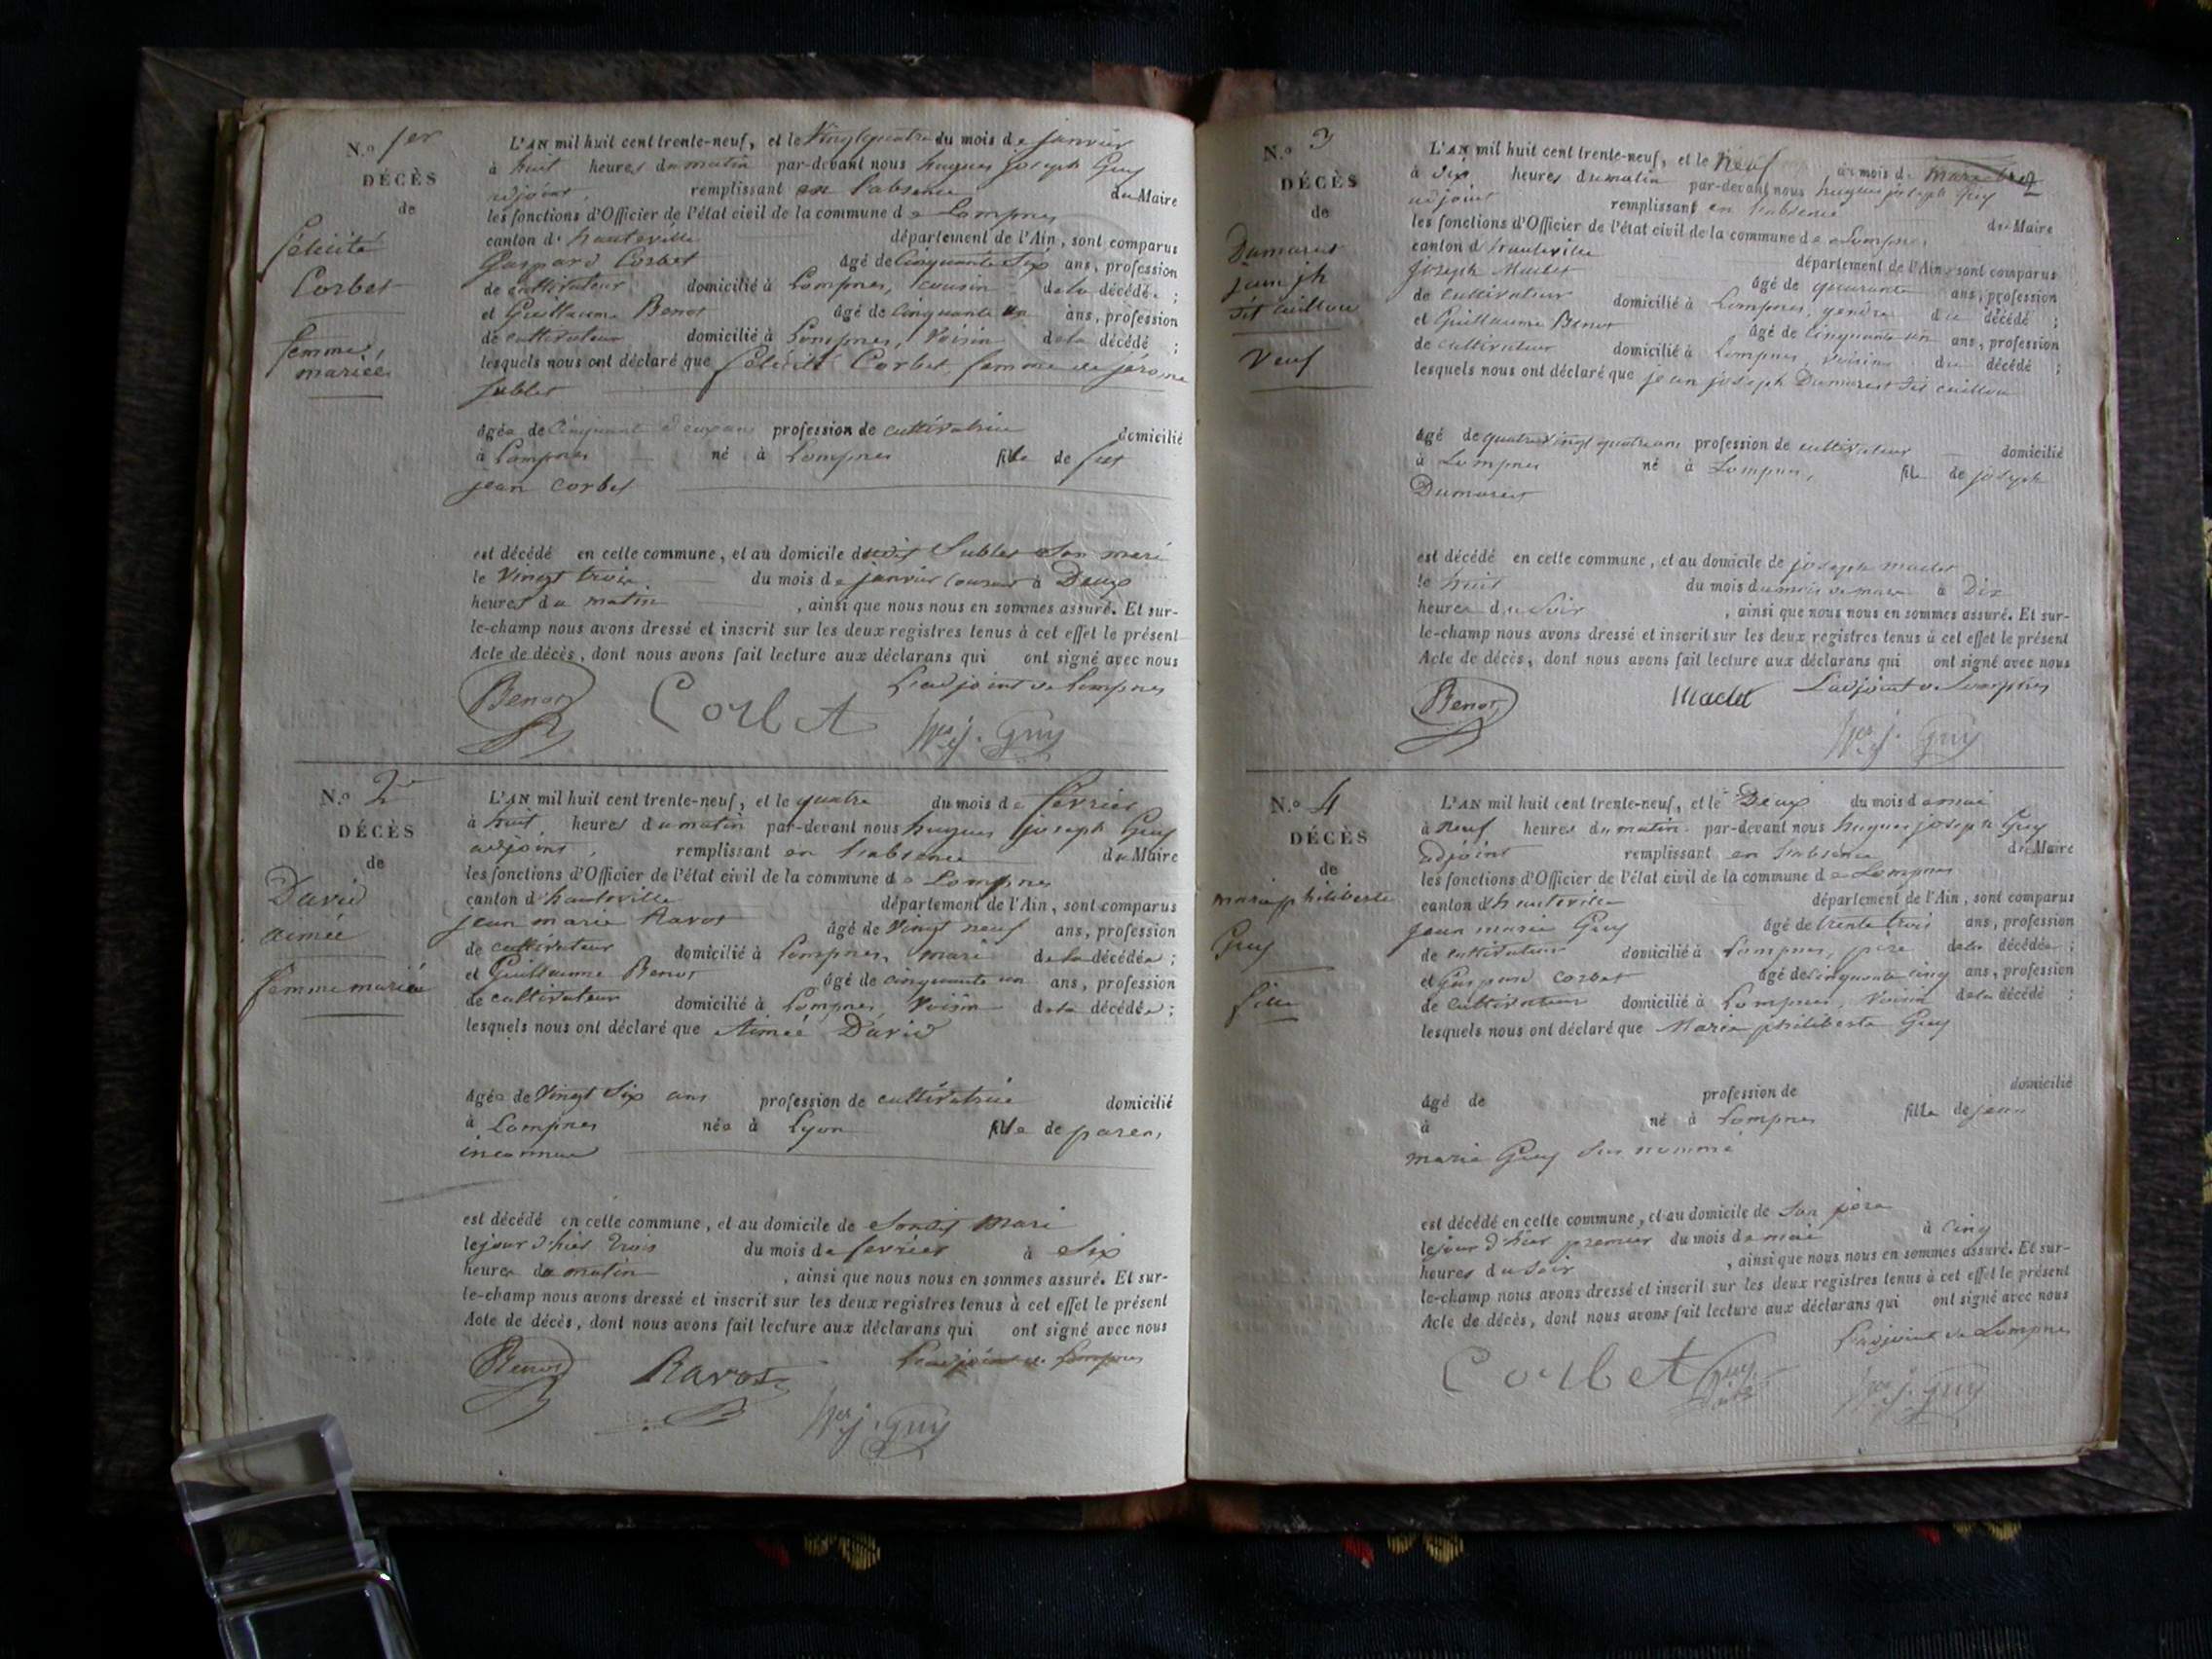 N.º 1er
DÉCÈS
de
félicité
Corbet
femme
mariée
L'AN mil huit cent trente-neuf, et le Vingtquatre du mois de janvier
à huit heures du matin par-devant nous hugues joseph Guy
adjoint, remplissant en l'absence du Maire
les fonctions d'Officier de l'état civil de la commune de Lompnes
canton d'hauteville département de l'Ain, sont comparus
Gaspard Corbet âgé de Cinquante Six ans, profession
de cultivateur domicilié à Lompnes, cousin de la décédée ;
et Guillaume Benot âgé de Cinquante un ans, profession
de cultivateur domicilié à Lompnes, Voisin de la décédé ;
lesquels nous ont déclaré que félicité Corbet femme de jérome
Sublet
âgée de Cinquante Deux ans profession de cultivatrice domicilié
à Lompnes né à Lompnes fille de feu
jean Corbet
est décédé en cette commune, et au domicile dudit Sublet Son mari
le Vingt trois du mois de janvier courant à Deux
heures du matin, ainsi que nous nous en sommes assuré. Et sur-
le-champ nous avons dressé et inscrit sur les deux registres tenus à cet effet le présent
Acte de décès, dont nous avons fait lecture aux déclarans qui ont signé avec nous
L'adjoint de Lompnes
Benot Corbet Guy
N.º 2
DÉCÈS
de
David
aimée
femme mariée
L'AN mil huit cent trente-neuf, et le quatre du mois de février
à huit heures du matin par-devant nous hugues joseph Guy
adjoint, remplissant en l'absence du Maire
les fonctions d'Officier de l'état civil de la commune de Lompnes
canton d'hauteville département de l'Ain, sont comparus
jean marie Ravot âgé de Vingt neuf ans, profession
de cultivateur domicilié à Lompnes, mari de la décédée ;
et Guillaume Benot âgé de cinquante un ans, profession
de cultivateur domicilié à Lompnes, Voisin de la décédée ;
lesquels nous ont déclaré que Aimée David
âgée de Vingt Six ans profession de cultivatrice domicilié
à Lompnes née à Lyon fille de parens
inconnus
est décédé en cette commune, et au domicile de Sondit Mari
le jour d'hier Trois du mois de février à Six
heures du matin, ainsi que nous nous en sommes assuré. Et sur-
le-champ nous avons dressé et inscrit sur les deux registres tenus à cet effet le présent
Acte de décès, dont nous avons fait lecture aux déclarans qui ont signé avec nous
Benot Ravot L'adjoint de Lompnes
Guy
N.º 3
DÉCÈS
de
Dumarest
jean jh
dit caillou
Veuf
L'AN mil huit cent trente-neuf, et le Neuf du mois de
à Six heures du matin par-devant nous hugues joseph Guy
adjoint remplissant en l'absence du Maire
les fonctions d'Officier de l'état civil de la commune de Lompnes
canton d'hauteville département de l'Ain, sont comparus
joseph Maclet âgé de quarante ans, profession
de cultivateur domicilié à Lompnes, gendre du décédé ;
et Guillaume Benot âgé de Cinquante un ans, profession
de cultivateur domicilié à Lompnes, Voisin du décédé ;
lesquels nous ont déclaré que jean joseph Dumarest dit caillou
âgé de quatre Vingt quatre ans profession de cultivateur domicilié
à Lompnes né à Lompnes, fils de joseph
Dumarest
est décédé en cette commune, et au domicile de joseph maclet
le huit du mois du mois de mars à Dix
heures du Soir, ainsi que nous nous en sommes assuré. Et sur-
le-champ nous avons dressé et inscrit sur les deux registres tenus à cet effet le présent
Acte de décès, dont nous avons fait lecture aux déclarans qui ont signé avec nous
Benot Maclet L'adjoint de Lompnes
Guy
N.º 4
DÉCÈS
de
marie philiberte
Guy
fille
L'AN mil huit cent trente-neuf, et le Deux du mois de mai
à Neuf heures du matin par-devant nous hugues joseph Guy
adjoint remplissant en l'absence du Maire
les fonctions d'Officier de l'état civil de la commune de Lompnes
canton d'hauteville département de l'Ain, sont comparus
Jean marie Guy âgé de trente trois ans, profession
de cultivateur domicilié à Lompnes, père de la décédée ;
et Gaspard Corbet âgé de Cinquante cinq ans, profession
de cultivateur domicilié à Lompnes, Voisin de la décédé ;
lesquels nous ont déclaré que Marie philiberte Guy
âgé de profession de domicilié
à né à Lompnes fille de jean
marie Guy Sus nommé
est décédé en cette commune, et au domicile de Son père
le jour d'hier premier du mois de mai à Cinq
heures du Soir, ainsi que nous nous en sommes assuré. Et sur-
le-champ nous avons dressé et inscrit sur les deux registres tenus à cet effet le présent
Acte de décès, dont nous avons fait lecture aux déclarans qui ont signé avec nous
L'adjoint de Lompnes
Corbet Guy Guy